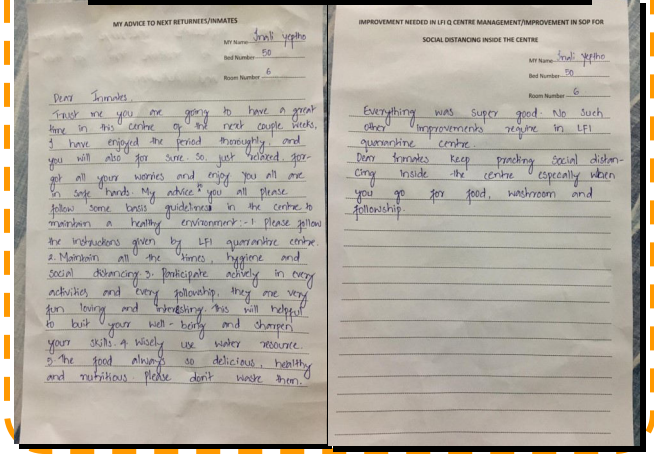 MY ADVICE TO NEXT RETURNEES/INMATES
MY Name Inali Yeptho
Bed Number 50
Room Number 6
Dear Inmates.
Trust me you are going to have a great
time in this centre of the next couple weeks,
I have enjoyed the period thoroughly, and
you will also for sure. So, just relaxed, for-
got all your worries and enjoy you all are
in safe hands. My advice to you all please
follow some basis guidelines in the centre to
maintain a healthy environment:- 1. Please follow
the instructions given by LFI quarantine centre.
2. Maintain all the times, hygiene and
social distancing 3. Participate actively in every
activities and every followship, they are very
fun loving and interesting, this will helpful
to buit your well-being and sharpen
your skills. 4 Wisely use water resource
5. The food always so delicious, healthy
and nutritious. Please don't waste them.
IMPROVEMENT NEEDED IN LFI Q CENTRE MANAGEMENT/IMPROVEMENT IN SOP FOR
SOCIAL DISTANCING INSIDE THE CENTRE
MY Name Inali Yeptho
Bed Number 50
Room Number 6
Everything was super good. No such
other improvements require in LFI
quarantine centre.
Dear Inmates keep practing social distan-
cing inside the centre especally when
you go for food, washroom and
followship.